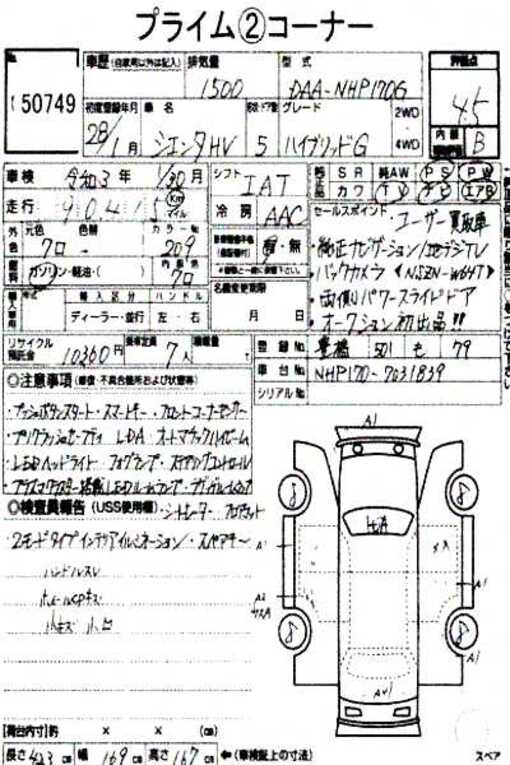 プライム②コーナー
No. 車歴 (自家用以外は記入) 排気量 型式 評価点
50749 1500 DAA-NHP170G 4.5
初度登録年月 車名 形状・ドア数 グレード 2WD 内装
28/1月 シエンタHV 5 ハイブリッドG 4WD B
車検 令和3年 1/30月 シフト IAT 純正品 SR 純AW PS PW
走行 90415 Km マイル 冷房 AAC カワ TV ナビ エアB
外色 元色 色替 カラーNo. セールスポイント・ユーザー買取車
クロ → 209 有・無 ・純正ナビゲーション/地デジTV
燃料 ガソリン・軽油・( ) 内装色 クロ ・バックカメラ《NSZN-W64T》
輸入車用 年式 輸入区分 ハンドル 名義変更期限 ・両側パワースライドドア
ディーラー・並行 左・右 月 日 ・オークション初出品!!
リサイクル預託金 10360円 乗車定員 7人 積載量 t 登録No. 豊橋 501 も 79
車台No. NHP170-7031839
◎注意事項 (修復・不具合箇所および状態等) シリアルNo.
・プッシュボタンスタート・スマートキー・フロントコーナーセンサー
・プリクラッシュセーフティ LDA オートマチックハイビーム
・LEDヘッドライト フォグランプ・ステアリングコントロール
◎検査員報告 (USS使用欄)・シートヒーター フロアマット
・2モードタイプインテリアイルミネーション・スペアキー
ハンドルスレ
ホイールCPキズ
小キズ 小凹
A1
8 8
ヒA
A1 メA
A2 A1
8 8
A1
AW1
【荷台内寸】約 × × (cm)
長さ 423 cm 幅 169 cm 高さ 167 cm ←(車検証上の寸法) スペア